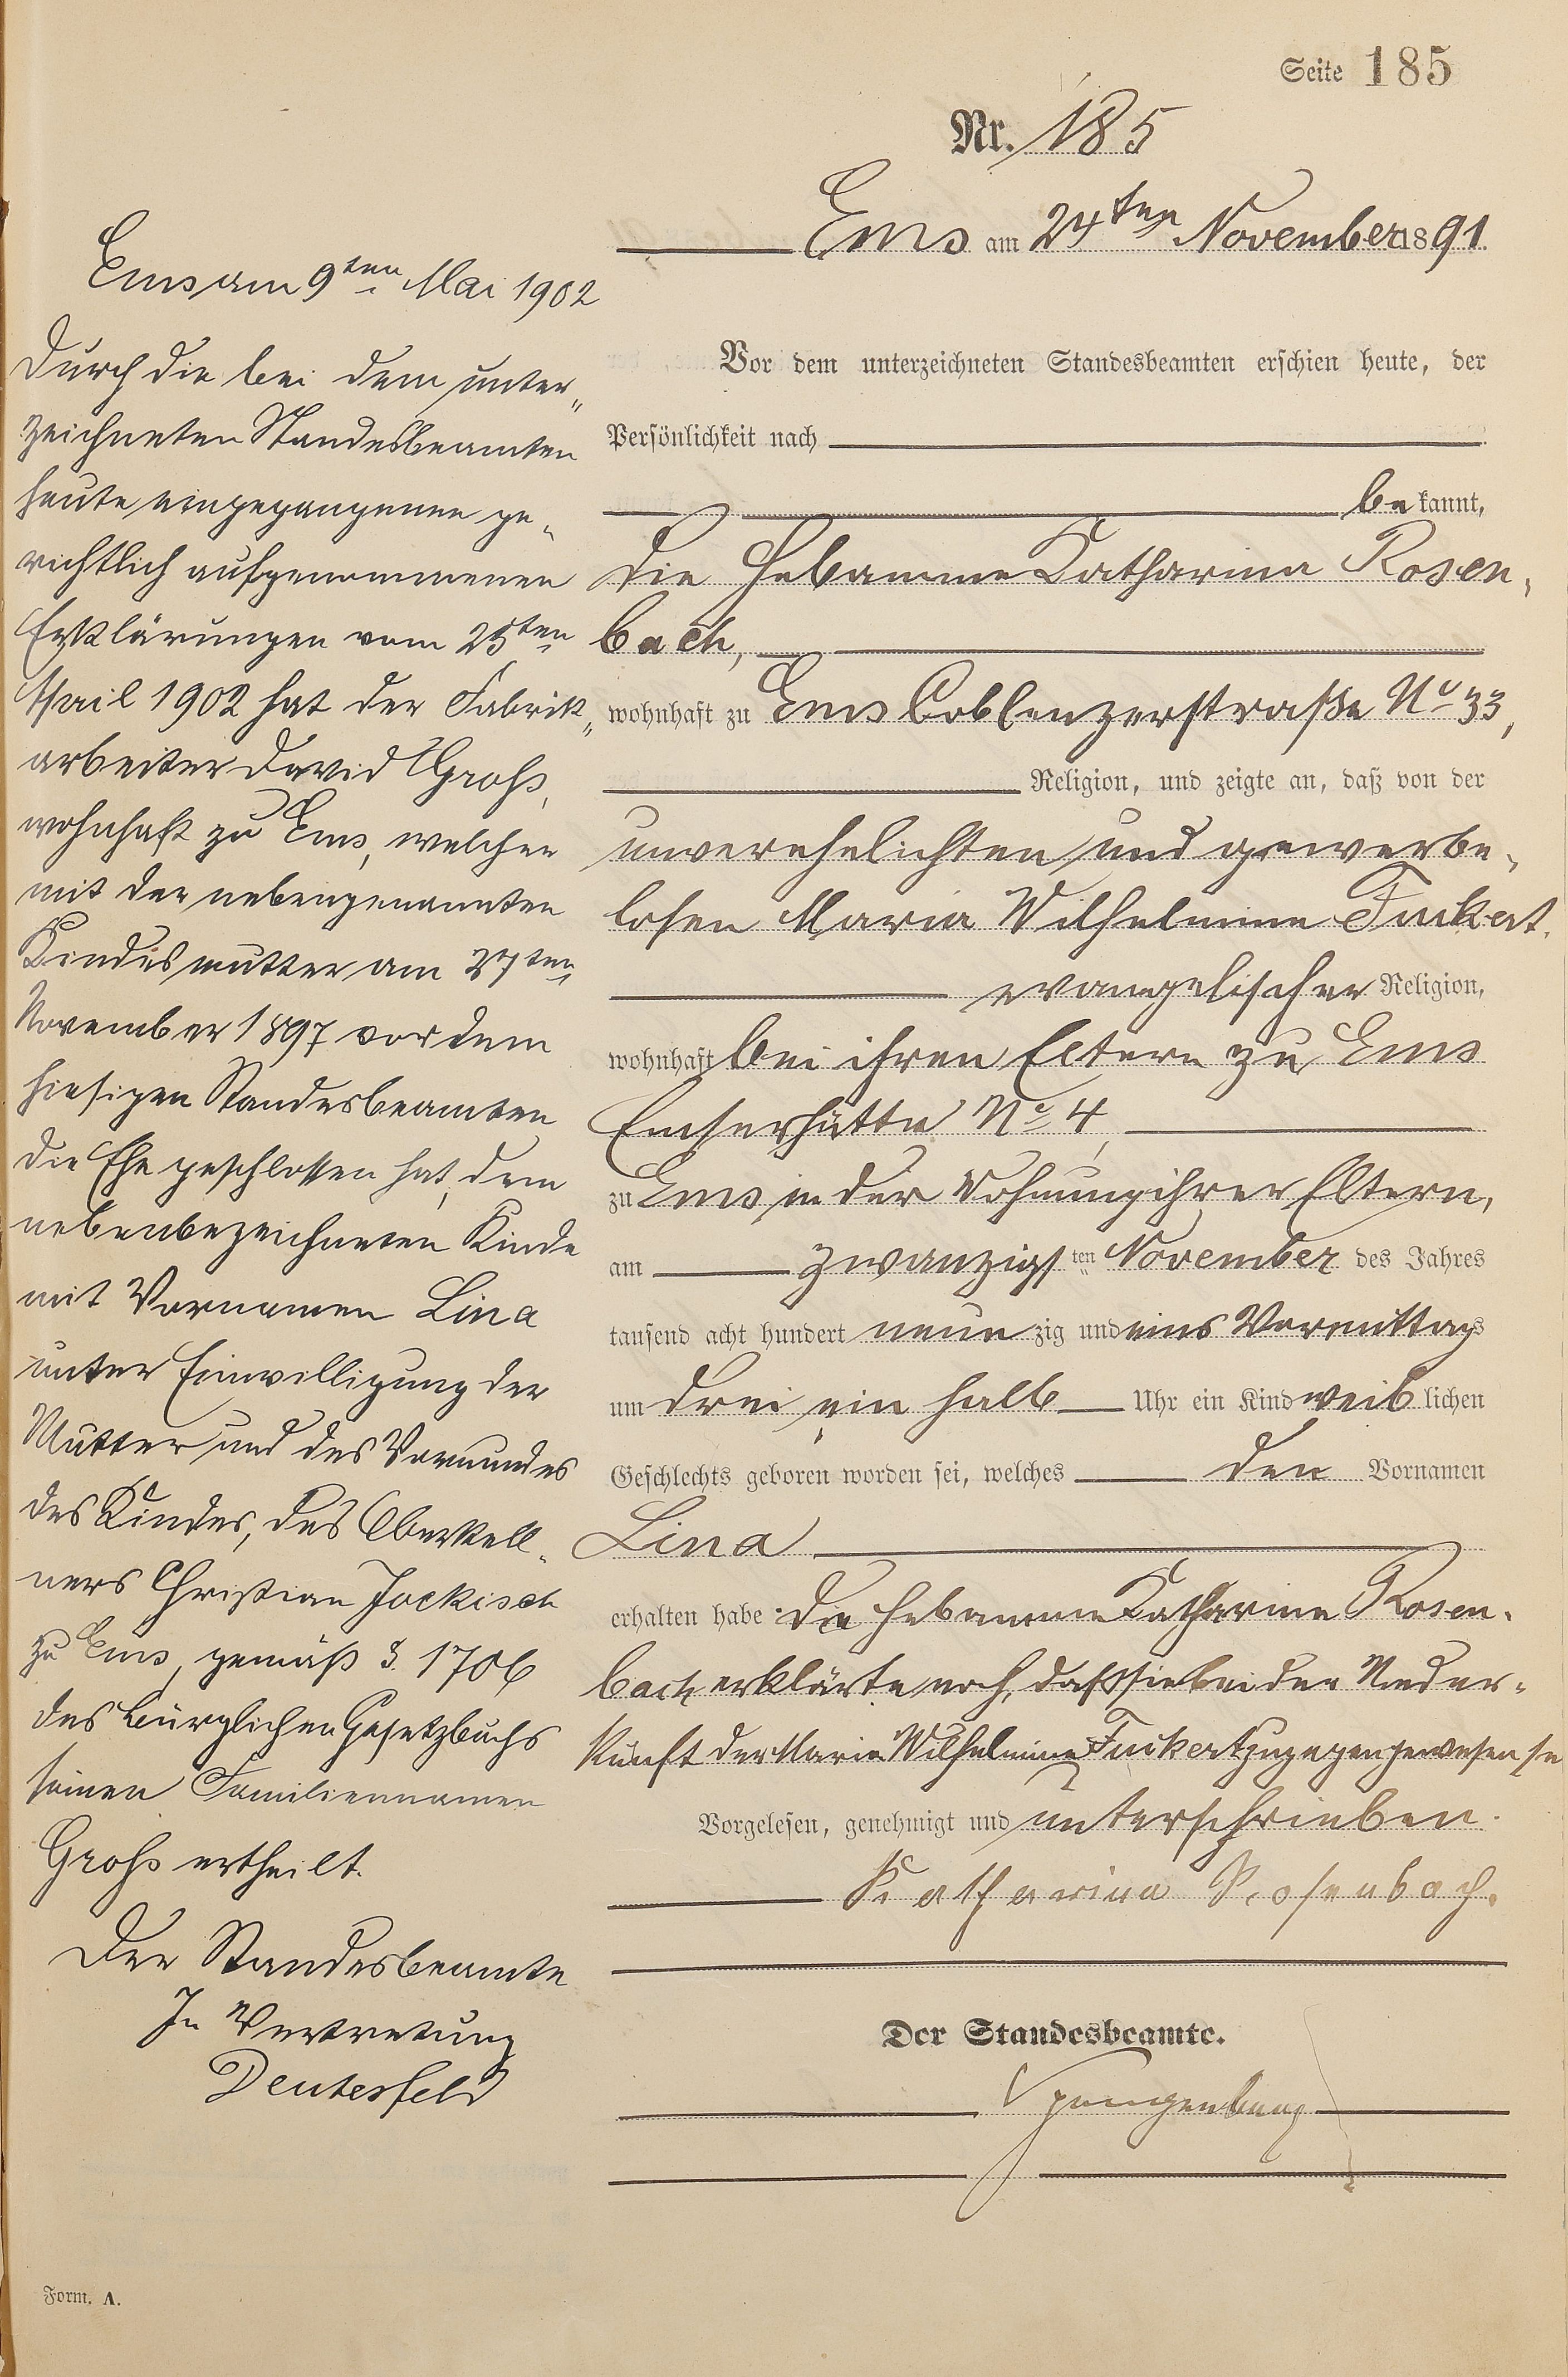 Seite 185
Nr. 185
Ems am 24ten November 1891.
Vor dem unterzeichneten Standesbeamten erschien heute, der
Persönlichkeit nach
bekannt,
die Hebamme Katharina Rosen-
bach,
wohnhaft zu Ems Coblenzerstraße No 33,
Religion, und zeigte an, daß von der
unverehelichten und gewerbe-
losen Maria Wilhelmine Fuckert,
evangelischer Religion,
wohnhaft bei ihren Eltern zu Ems
Emserhütte No 4,
zu Ems in der Wohnung ihrer Eltern,
am zwanzigsten November des Jahres
tausend acht hundert neunzig und eins Vormittags
um drei ein halb Uhr ein Kind weiblichen
Geschlechts geboren worden sei, welches den Vornamen
Lina
erhalten habe. Die Hebamme Katharina Rosen-
bach erklärte noch, daß sie bei der Nieder-
kunft der Maria Wilhelmine Fuckert zugegen gewesen sei
Vorgelesen, genehmigt und unterschrieben.
Katharina Rosenbach.
Der Standesbeamte.
Spangenberg
Ems am 9ten Mai 1902
Durch die bei dem unter-
zeichneten Standesbeamten
heute eingegangenen ge-
richtlich aufgenommenen
Erklärungen vom 25ten
April 1902 hat der Fabrik-
arbeiter David Groß,
wohnhaft zu Ems, welcher
mit der nebengenannten
Kindesmutter am 27ten
November 1897 vor dem
hiesigen Standesbeamten
die Ehe geschlossen hat, dem
nebenbezeichneten Kinde
mit Vornamen Lina
unter Einwilligung der
Mutter und des Vormundes
des Kindes, des Oberkell-
ners Christian Jockisch
zu Ems, gemäß §. 1706
des Bürglichen Gesetzbuchs
seinen Familiennamen
Groß ertheilt.
Der Standesbeamte
In Vertretung
Deutesfeld
Form. A.